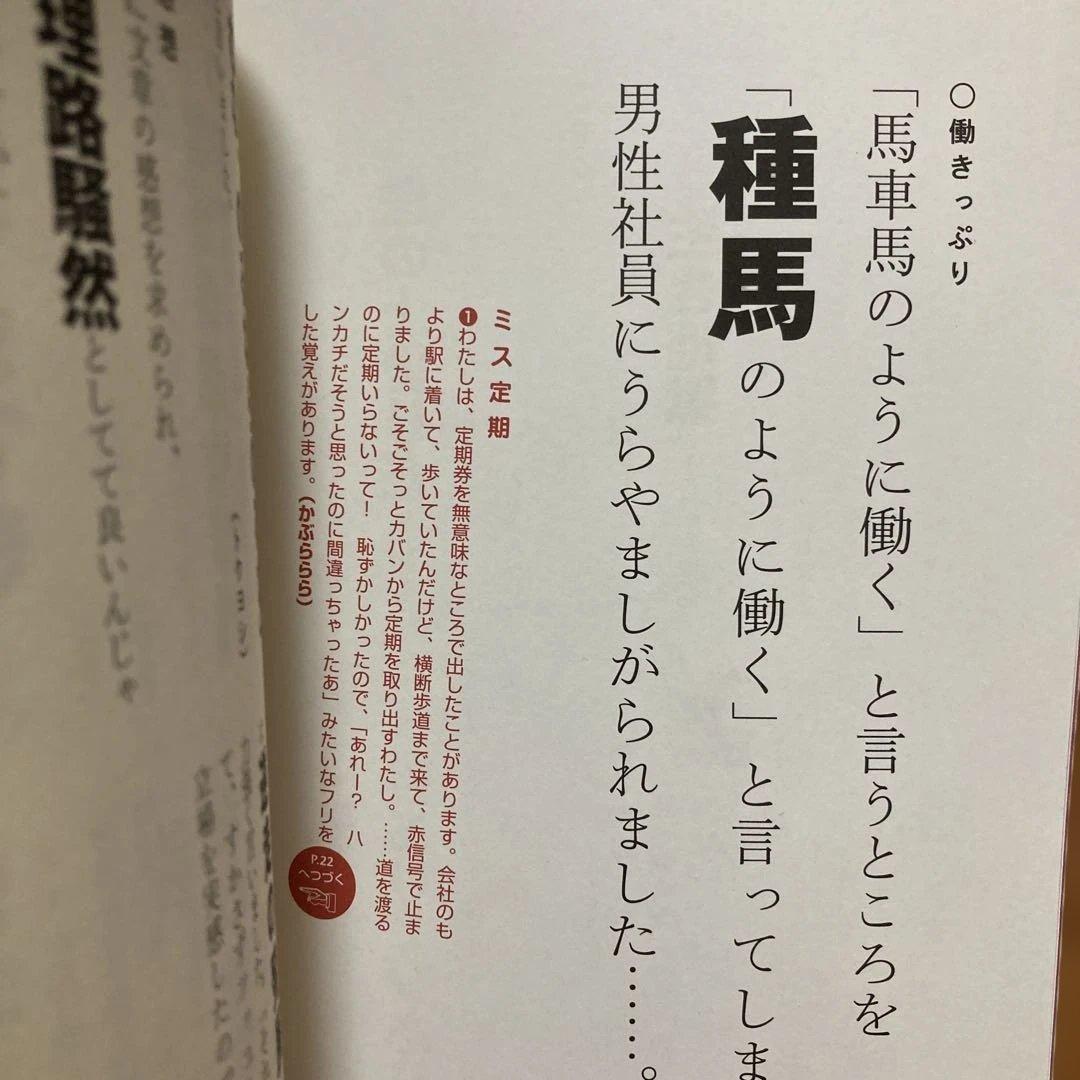 ○働きっぷり
「馬車馬のように働く」と言うところを
「種馬のように働く」と言ってしま
男性社員にうらやましがられました……。
ミス定期
❶わたしは、定期券を無意味なところで出したことがあります。会社のも
より駅に着いて、歩いていたんだけど、横断歩道まで来て、赤信号で止ま
りました。ごそごそっとカバンから定期を取り出すわたし。……道を渡る
のに定期いらないって！　恥ずかしかったので、「あれー？　ハ
ンカチだそうと思ったのに間違っちゃったあ」みたいなフリを
した覚えがあります。(かぶららら)
P.22
へつづく
文章の感想を求められ、
路騒然としてて良いんじゃ